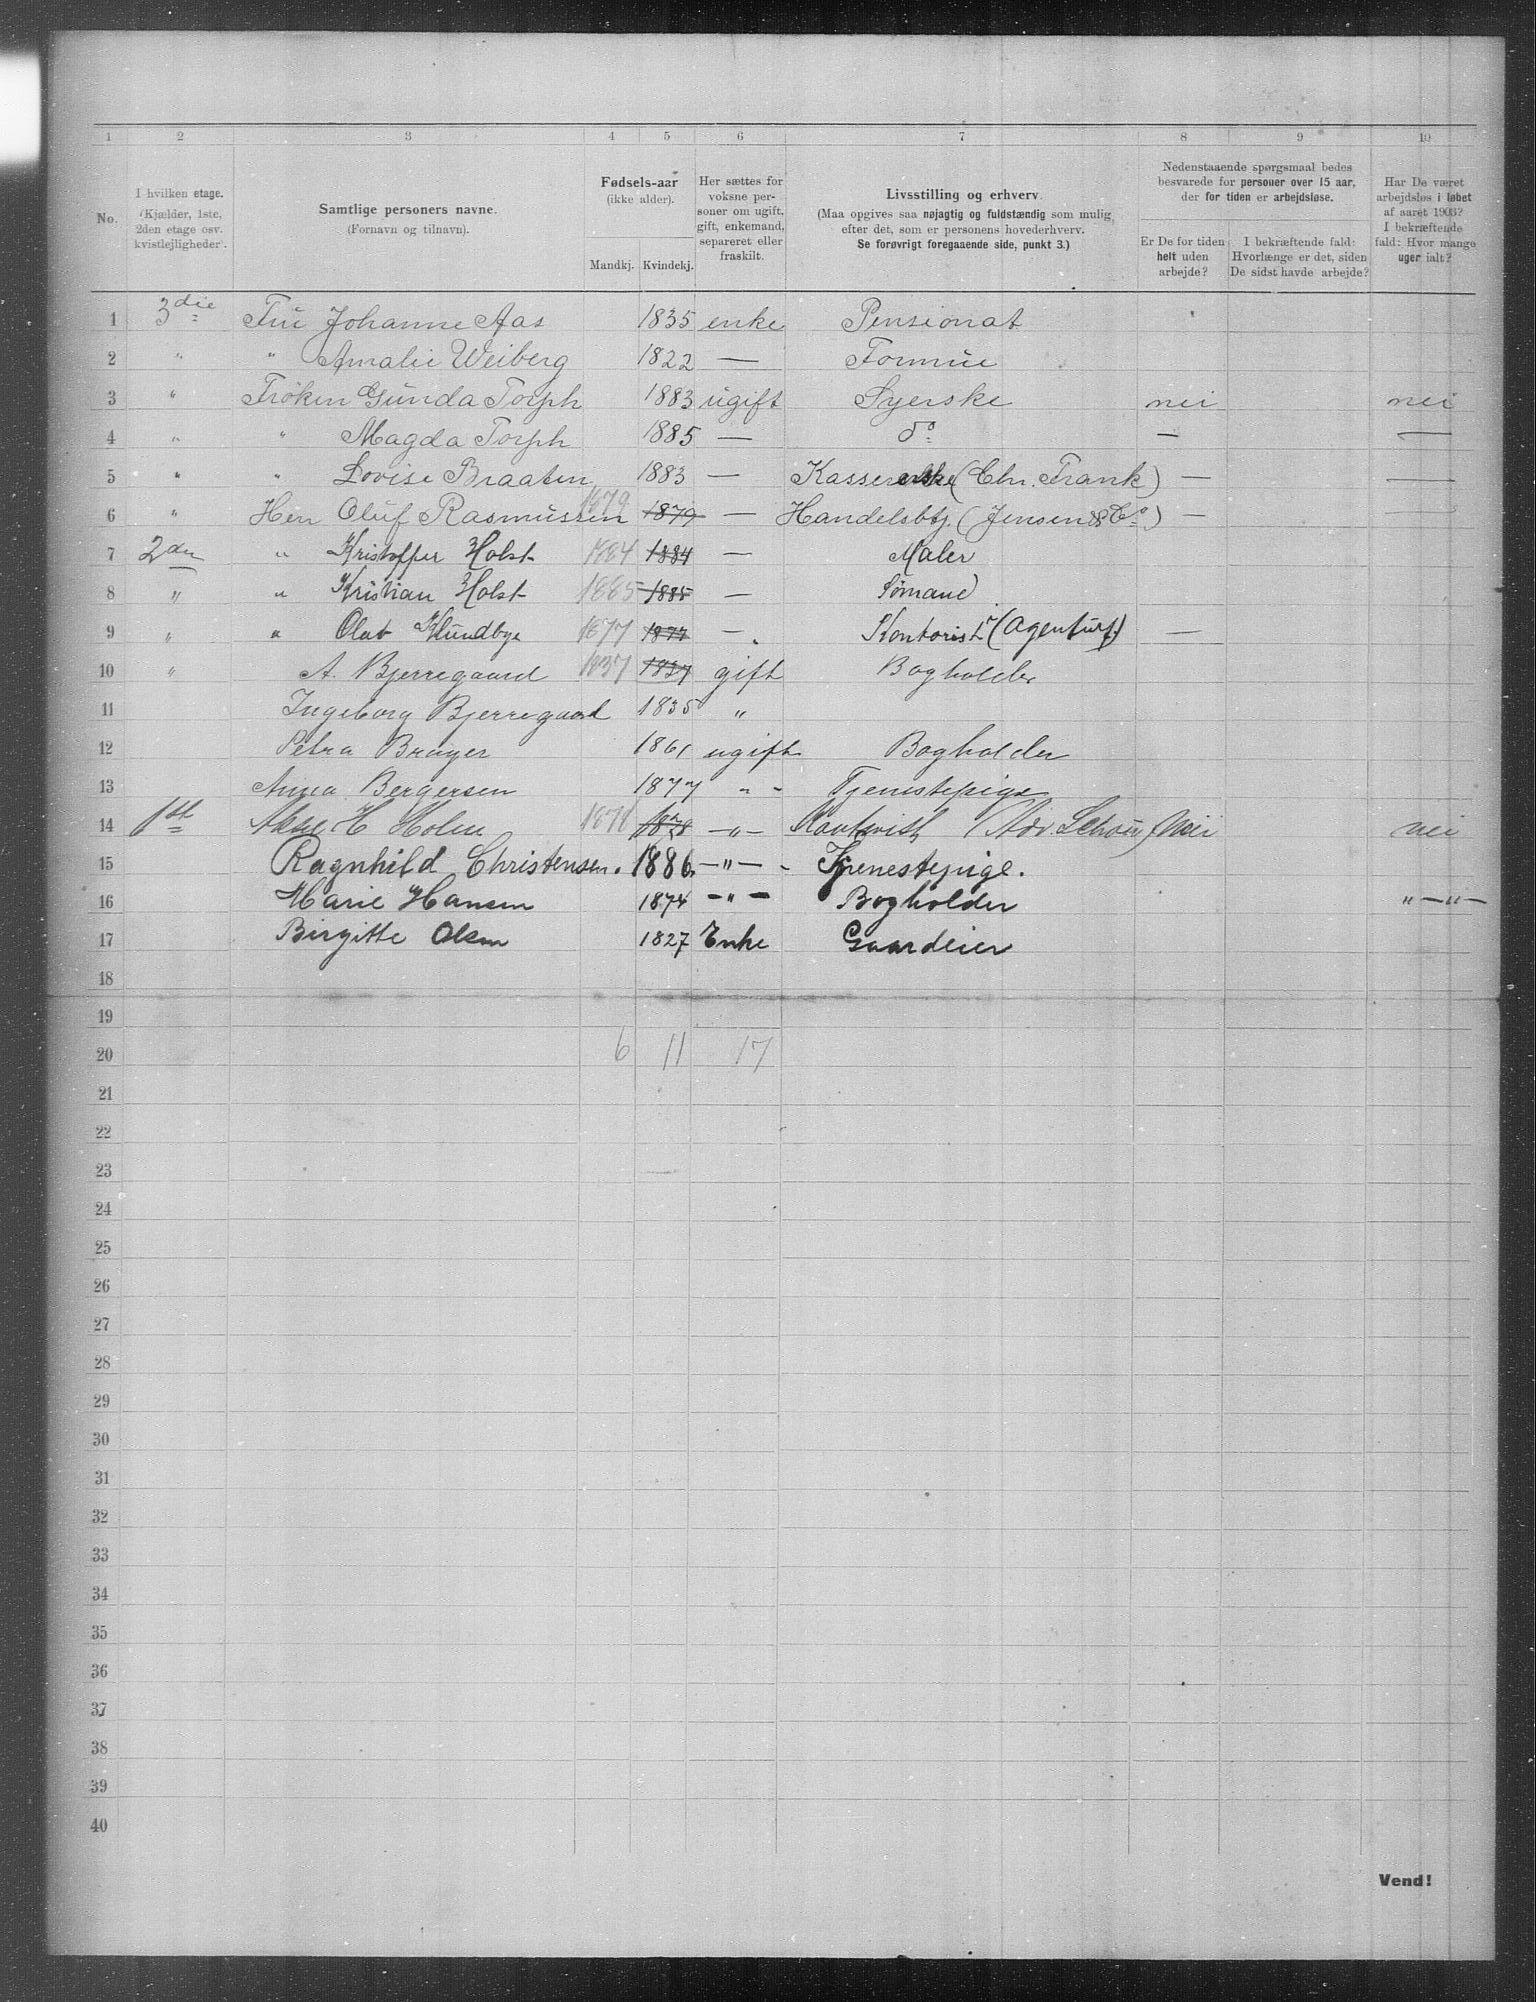 1 2 3 4 5 6 7 8 9 10
No. I hvilken etage. (Kjælder, 1ste, 2den etage osv. kvistlejligheder). Samtlige personers navne. (Fornavn og tilnavn). Fødsels-aar (ikke alder). Mandkj. Kvindekj. Her sættes for voksne personer om ugift, gift, enkemand, separeret eller fraskilt. Livsstilling og erhverv. (Maa opgives saa nøjagtig og fuldstændig som mulig, efter det, som er personens hovederhverv. Se forøvrigt foregaaende side, punkt 3.) Nedenstaaende spørgsmaal bedes besvarede for personer over 15 aar, der for tiden er arbejdsløse. Er De for tiden helt uden arbejde? I bekræftende fald: Hvorlænge er det, siden De sidst havde arbejde? Har De været arbejdsløs i løbet af aaret 1903? I bekræftende fald: Hvor mange uger ialt?
1 3die Fru Johanne Aas 1835 enke Pensionat
2 " " Amalie Weiberg 1822 — Formue
3 " Frøken Gunda Torph 1883 ugift Syerske nei nei
4 " " Magda Torph 1885 — do — —
5 " " Lovise Braaten 1883 — Kassererske (Chr. Frank) — —
6 " Herr Oluf Rasmussen 1879 1879 — Handelsbtj. (Jensen & Co) — —
7 2den " Kristoffer Holst 1884 1884 — Maler
8 " " Kristian Holst 1885 1885 — Sømand
9 " " Olab Klundbye 1877 1877 — Kontorist (Agentur) —
10 " A. Bjerregaard 1837 1837 gift Bogholder
11 Ingeborg Bjerregaard 1835 "
12 Petra Brager 1861 ugift Bogholder
13 Anna Bergersen 1877 " - Tjenestepige
14 1st H Holm 1878 1878 —"— Kontorist (Adv. Schou) Nei nei
15 Ragnhild Christensen. 1886. —"— - Tjenestepige.
16 Marie Hansen 1874 —"— Bogholder "—"—
17 Birgitte Olsen 1827 Enke Gaardeier
18
19
20 6 11 17
21
22
23
24
25
26
27
28
29
30
31
32
33
34
35
36
37
38
39
40
Vend!